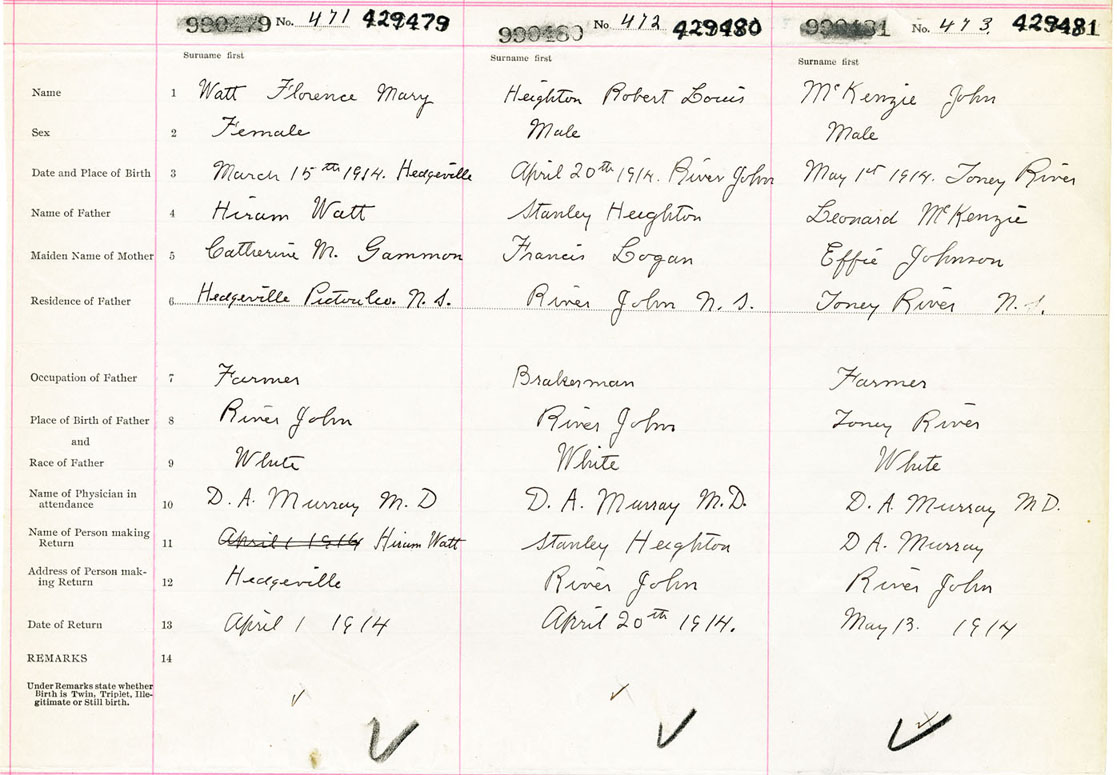 990479 No. 471 429479 990480 No 472 429480 990481 No. 473 429481
Surname first Surname first Surname first
Name 1 Watt Florence Mary Heighton Robert Louis McKenzie John
Sex 2 Female Male Male
Date and Place of Birth 3 March 15th 1914. Hedgeville April 20th 1914. River John May 1st 1914. Toney River
Name of Father 4 Hiram Watt Stanley Heighton Leonard McKenzie
Maiden Name of Mother 5 Catherine M. Gammon Francis Logan Effie Johnson
Residence of Father 6 Hedgeville Pictou Co. N. S. River John N. S. Toney River N. S.
Occupation of Father 7 Farmer Brakerman Farmer
Place of Birth of Father 8 River John River John Toney River
and
Race of Father 9 White White White
Name of Physician in
attendance 10 D. A. Murray M. D D. A. Murray M. D. D. A. Murray M D.
Name of Person making
Return 11 April 1 1914 Hiram Watt Stanley Heighton D A. Murray
Address of Person mak-
ing Return 12 Hedgeville River John River John
Date of Return 13 April 1 1914 April 20th 1914. May 13. 1914
REMARKS 14
Under Remarks state whether
Birth is Twin, Triplet, Ille-
gitimate or Still birth.